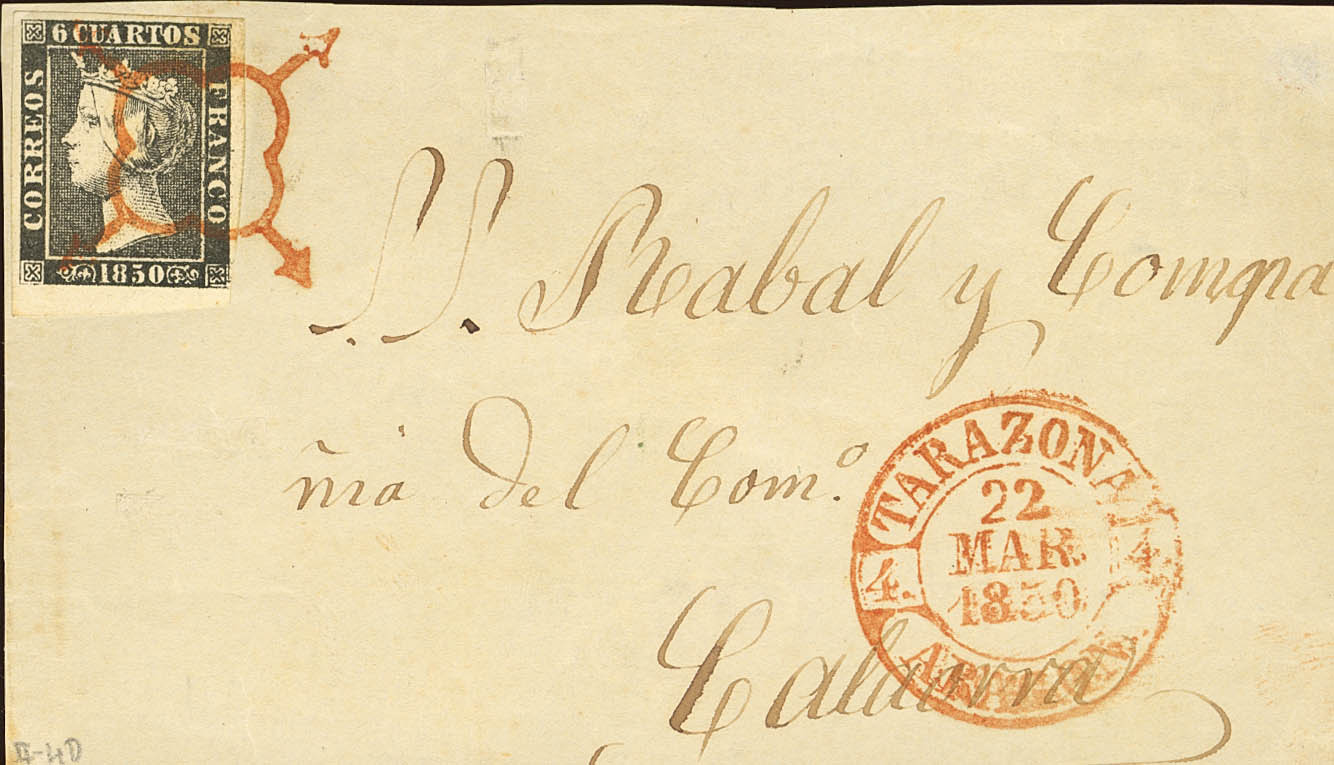 6 CUARTOS
CORREOS
FRANCO
1850
S.S. Rabal y Compa
ñia del Com.º
Calahorra
TARAZONA
22
MAR.
1850
4.
4.
ARAGON.